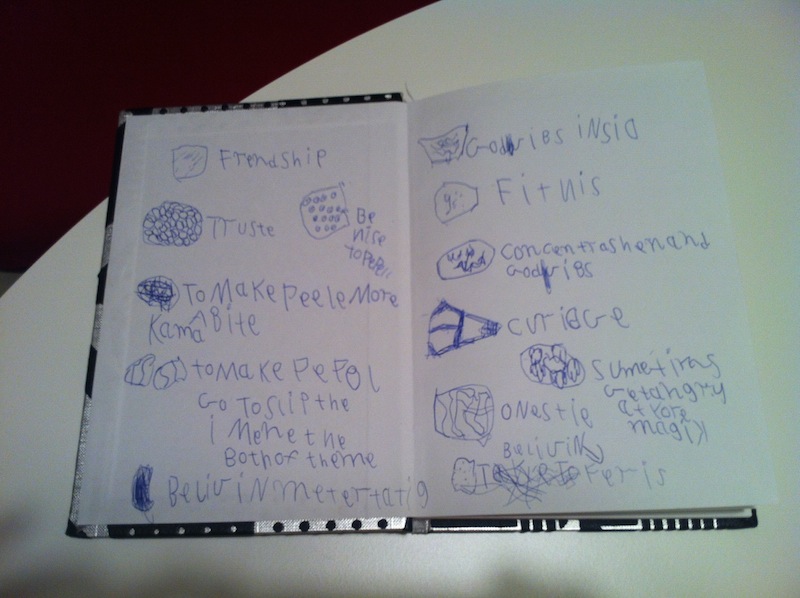 Frendship
Truste
Be
nise
to pepel
To Make peele More
Kama A Bite
to Make PePol
Go To Slip the
i Mene the
Both of theme
Beliv iN metertatig
Godvibs iNsid
Fitnis
concentrashen and
Godvibs
curidge
Sumetims
Get angry
at yore
magik
onestie
Belivin
Feris